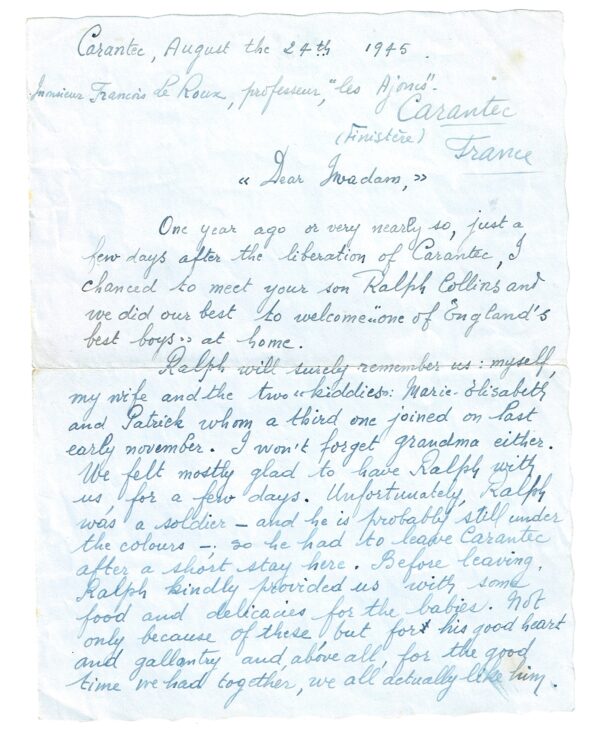 Carantec, August the 24th 1945.
Monsieur Francois Le Roux, professeur, "les Ajoncs".
Carantec
(Finistère)
France
« Dear Madam, »
One year ago or very nearly so, just a
few days after the liberation of Carantec, I
chanced to meet your son Ralph Collins and
we did our best to welcome "one of England's
best boys" at home.
Ralph will surely remember us: myself,
my wife and the two "kiddies": Marie-Elisabeth
and Patrick whom a third one joined on last
early november. I won't forget grandma either.
We felt mostly glad to have Ralph with
us, for a few days. Unfortunately, Ralph
was a soldier – and he is probably still under
the colours –, so he had to leave Carantec
after a short stay here. Before leaving,
Ralph kindly provided us with some
food and delicacies for the babies. Not
only because of these but for his good heart
and gallantry and, above all, for the good
time we had together, we all actually like him.